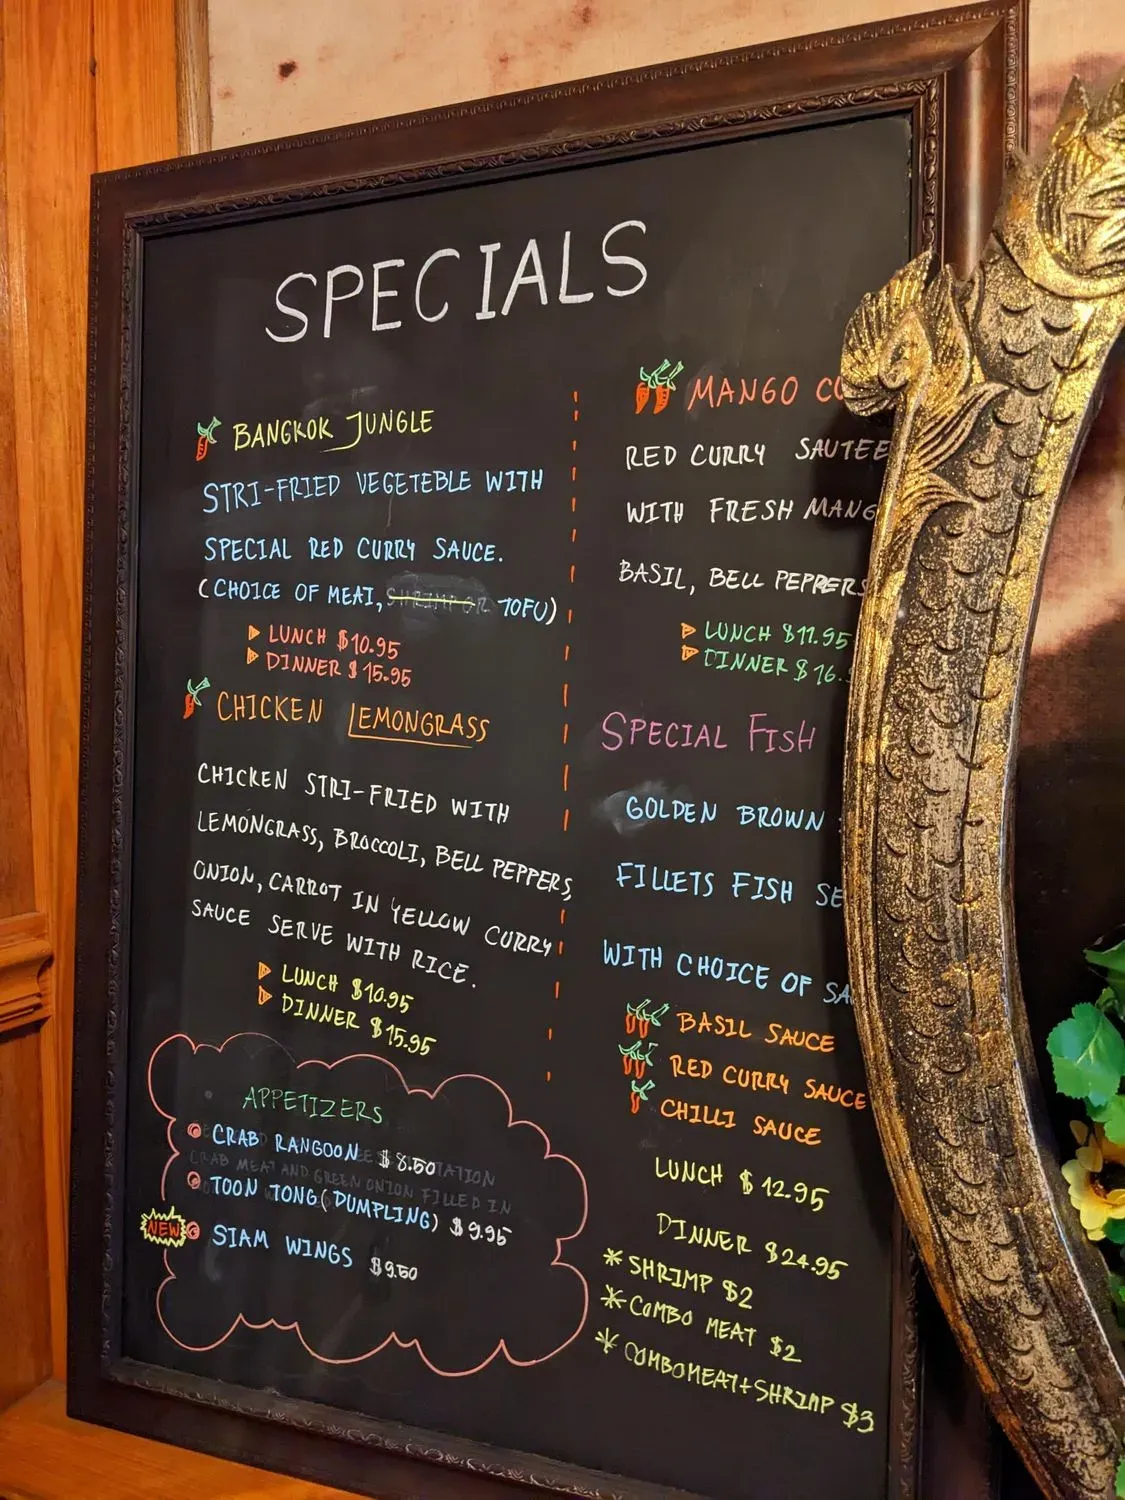 SPECIALS
BANGKOK JUNGLE
STRI-FRIED VEGETEBLE WITH
SPECIAL RED CURRY SAUCE.
(CHOICE OF MEAT, SHRIMP OR TOFU)
LUNCH $10.95
DINNER $15.95
CHICKEN LEMONGRASS
CHICKEN STRI-FRIED WITH
LEMONGRASS, BROCCOLI, BELL PEPPERS,
ONION, CARROT IN YELLOW CURRY
SAUCE SERVE WITH RICE.
LUNCH $10.95
DINNER $15.95
APPETIZERS
CRAB RANGOON $8.50
CRAB MEAT AND GREEN ONION FILLED IN
TOON TONG (DUMPLING) $9.95
NEW SIAM WINGS $9.50
MANGO
RED CURRY SAUTEE
WITH FRESH MANG
BASIL, BELL PEPPERS
LUNCH $11.95
DINNER $16.
SPECIAL FISH
GOLDEN BROWN
FILLETS FISH SE
WITH CHOICE OF SA
BASIL SAUCE
RED CURRY SAUCE
CHILLI SAUCE
LUNCH $12.95
DINNER $24.95
* SHRIMP $2
* COMBO MEAT $2
* COMBOMEAT+SHRIMP $3